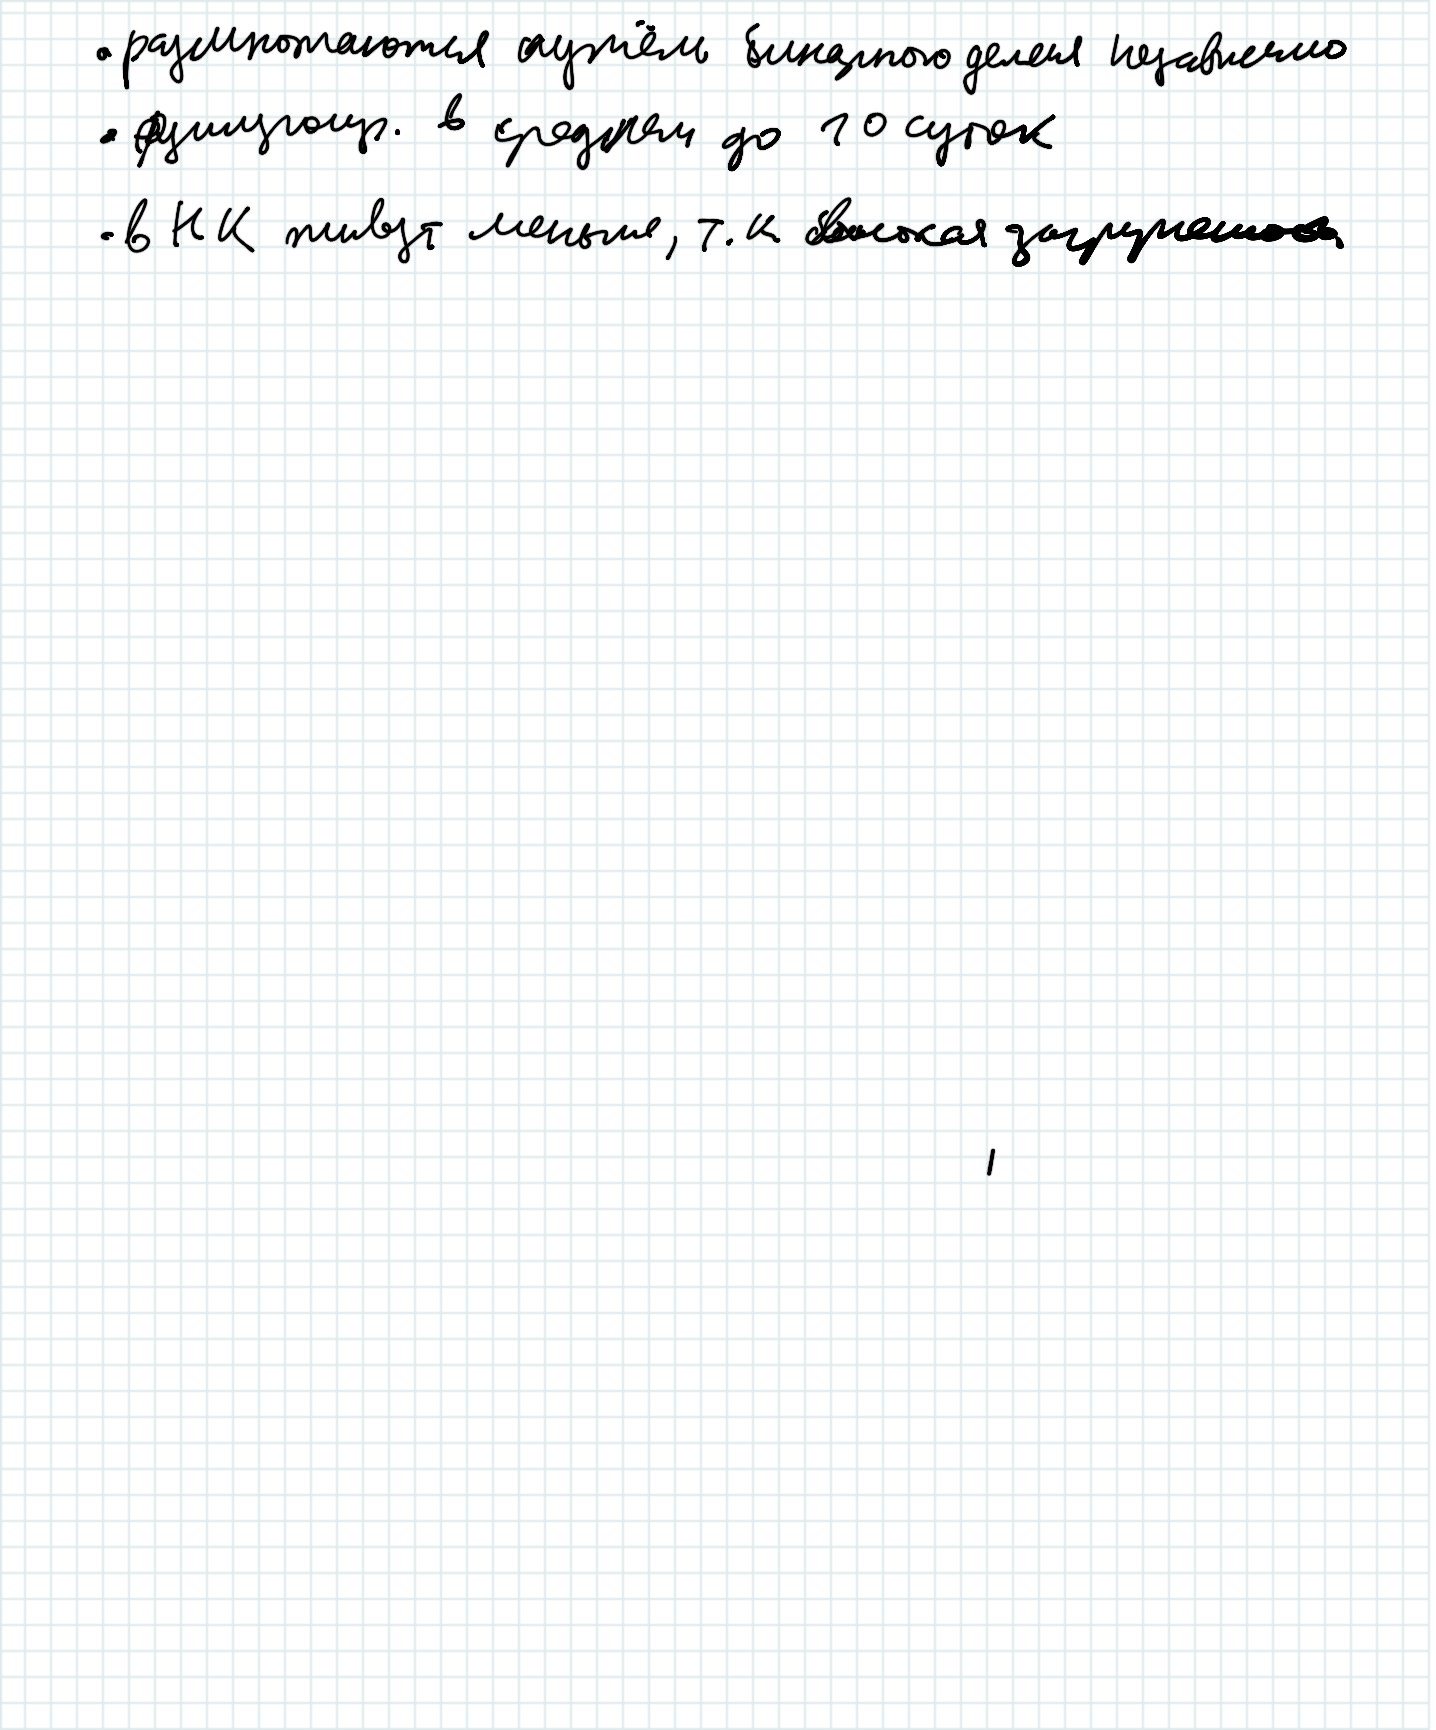 • размножаются путём бинарного делея независимо
• функцион. в среднем до 10 суток
• в НК живут меньше, т.к высокая загруженность